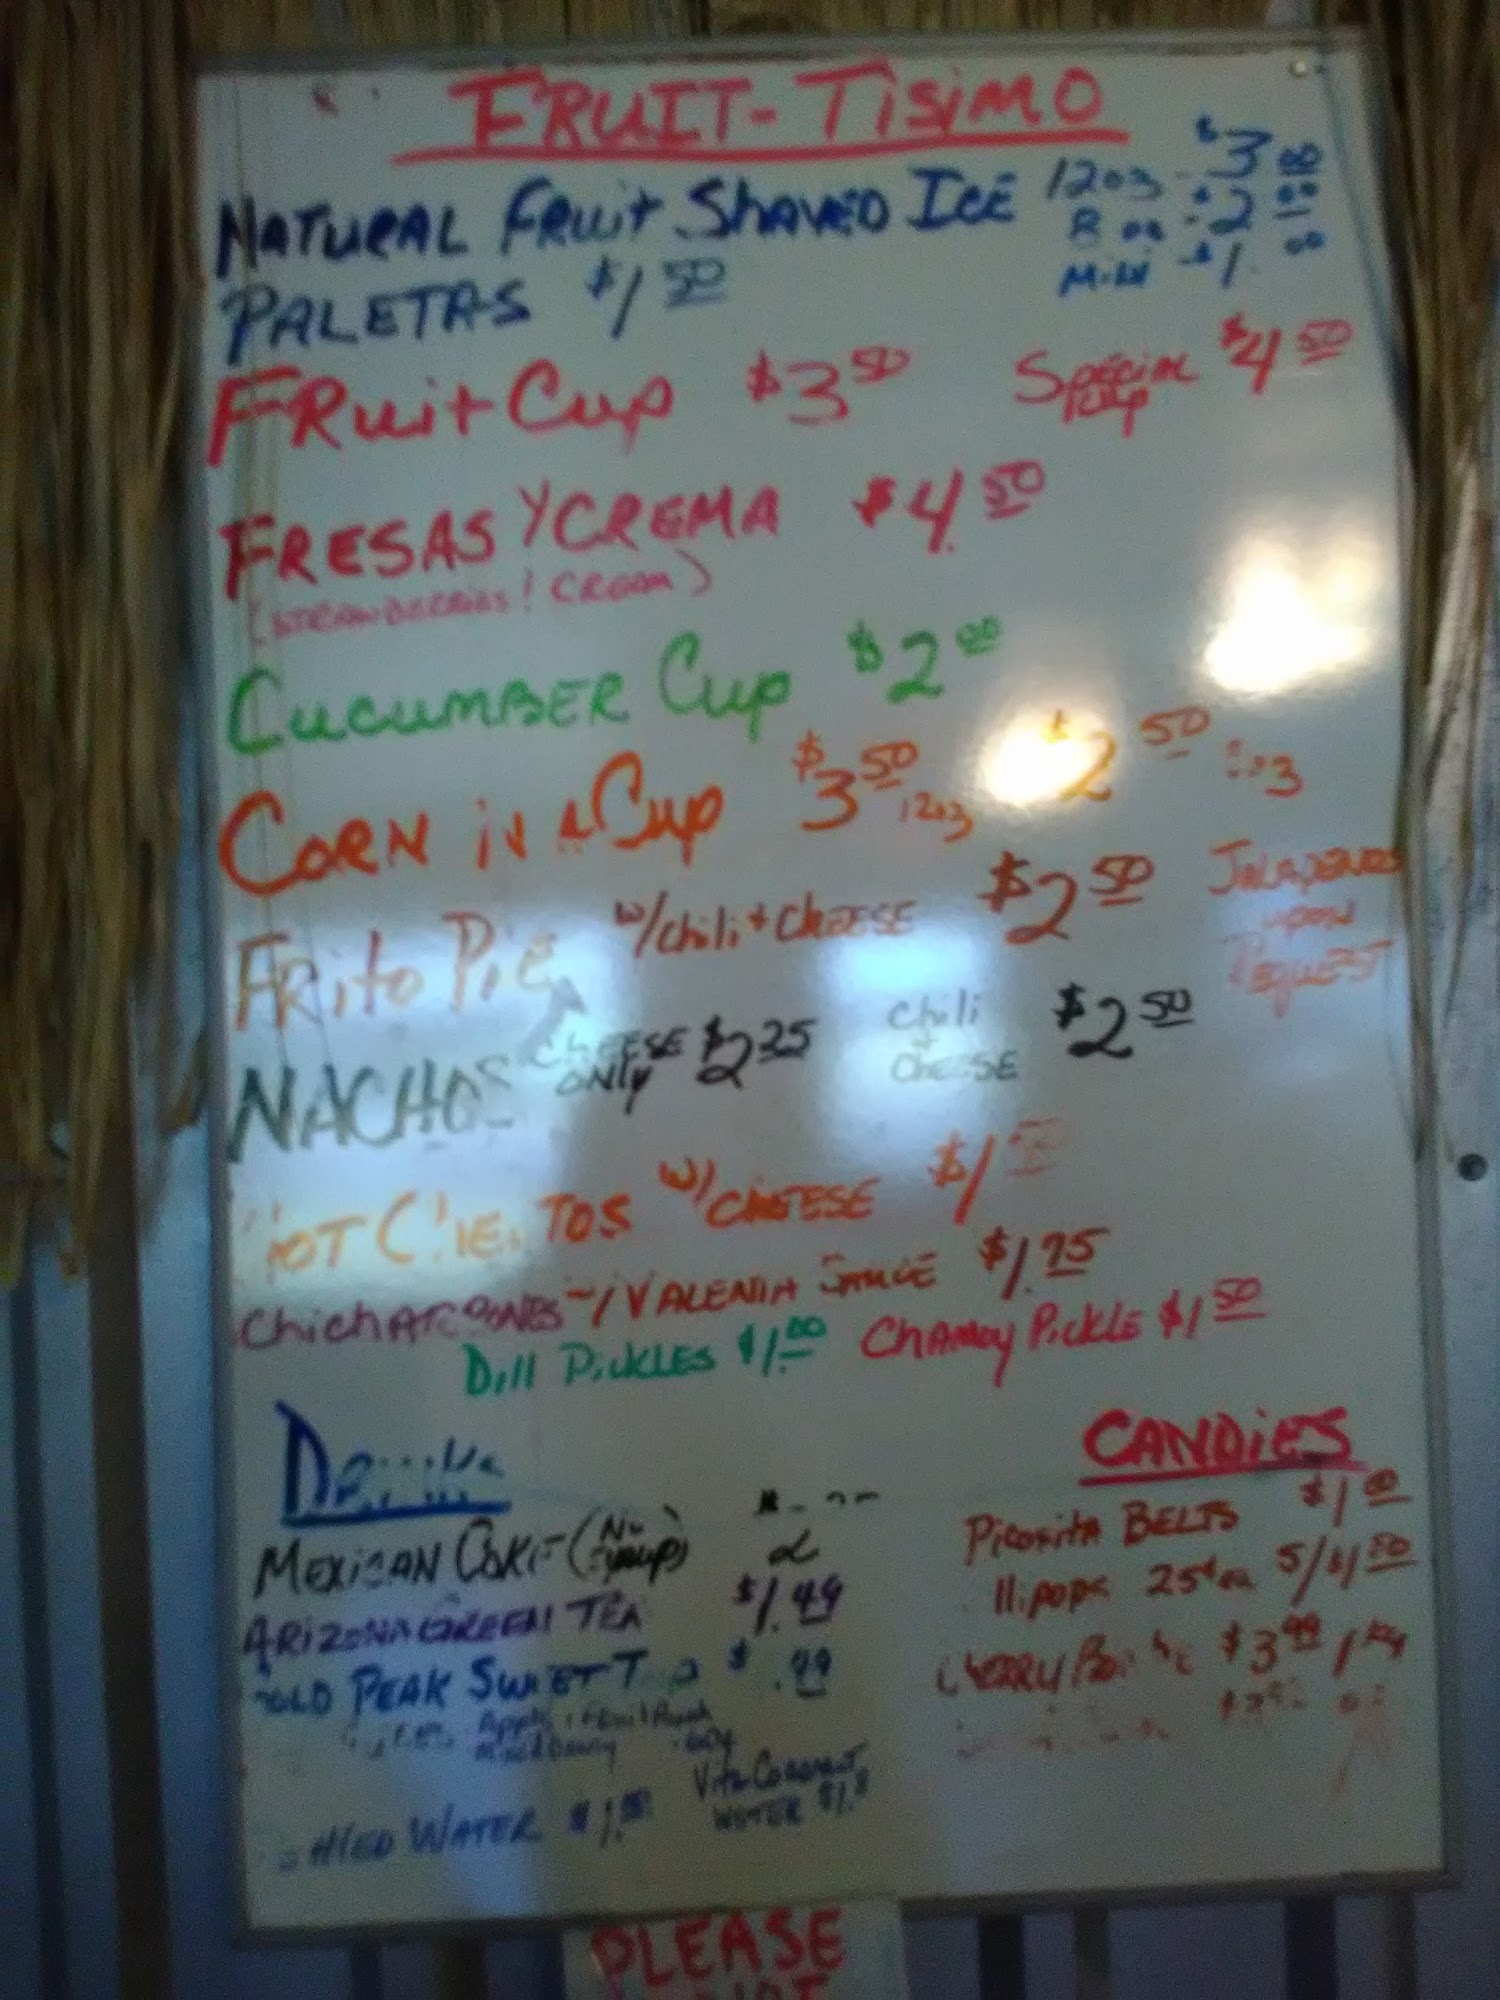 FRUIT-TISIMO
NATURAL FRUIT SHAVED ICE 12oz $3.00
8 oz $2.00
Mini $1.00
PALETAS $1.50
FRuit Cup $3.50 SPECIAL CUP $4.50
FRESAS Y CREMA $4.50
(STRAWBERRIES! CREAM)
CUCUMBER Cup $2.00
CORN in a Cup $3.50 12oz $2.50
FRito PiE w/chili + CHEESE $2.50 JALAPENOS UPON REQUEST
NACHOS CHEESE ONLY $2.25 Chili + CHEESE $2.50
HOT CHEETOS w/CHEESE $1
ChichARRONES w/VALENTIA SAUCE $1.75
Dill PiCKLES $1.00 CHAMOY PiCKLE $1.50
DRiNKS
MEXiCAN COKE (No syrup)
ARIZONA GREEN TEA $1.49
GOLD PEAK SWEET TEA $.99
Apple Fruit Punch
WATER $1.00
Vita Coconut WATER
CANDiES
PiCOSitA BELTS $1.00
lliPOPS 25¢ ea 5/$1.00
CHERRY $3.99
PLEASE